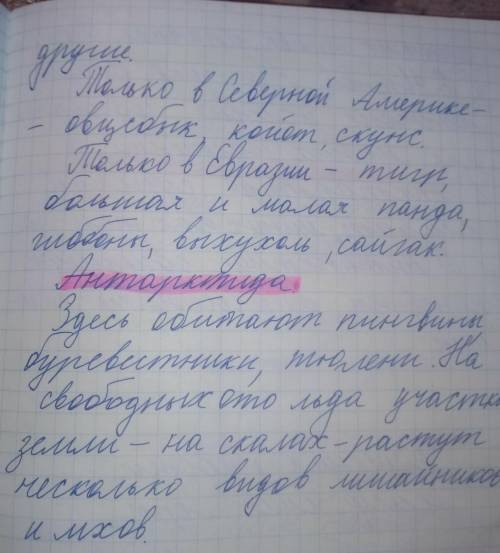 другие.
Только в Северной Америке-
- овцебык, койот, скунс.
Только в Евразии - тигр,
большая и малая панда,
гиббоны, выхухоль, сайгак.
Антарктида.
Здесь обитают пингвины
буревестники, тюлени. На
свободных ото льда участка
земли - на скалах - растут
несколько видов лишайников
и мхов.